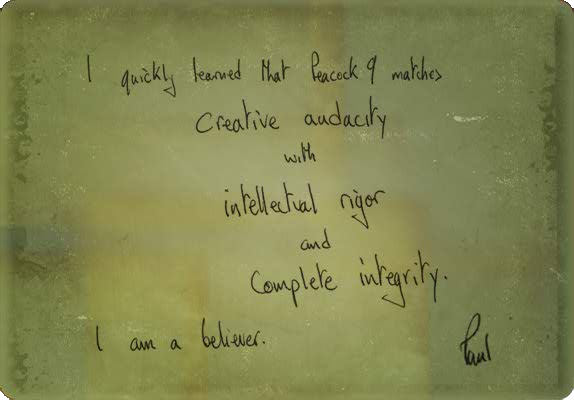 I quickly learned that Peacock 9 matches
Creative audacity
with
intellectual rigor
and
Complete integrity.
I am a believer.
Paul